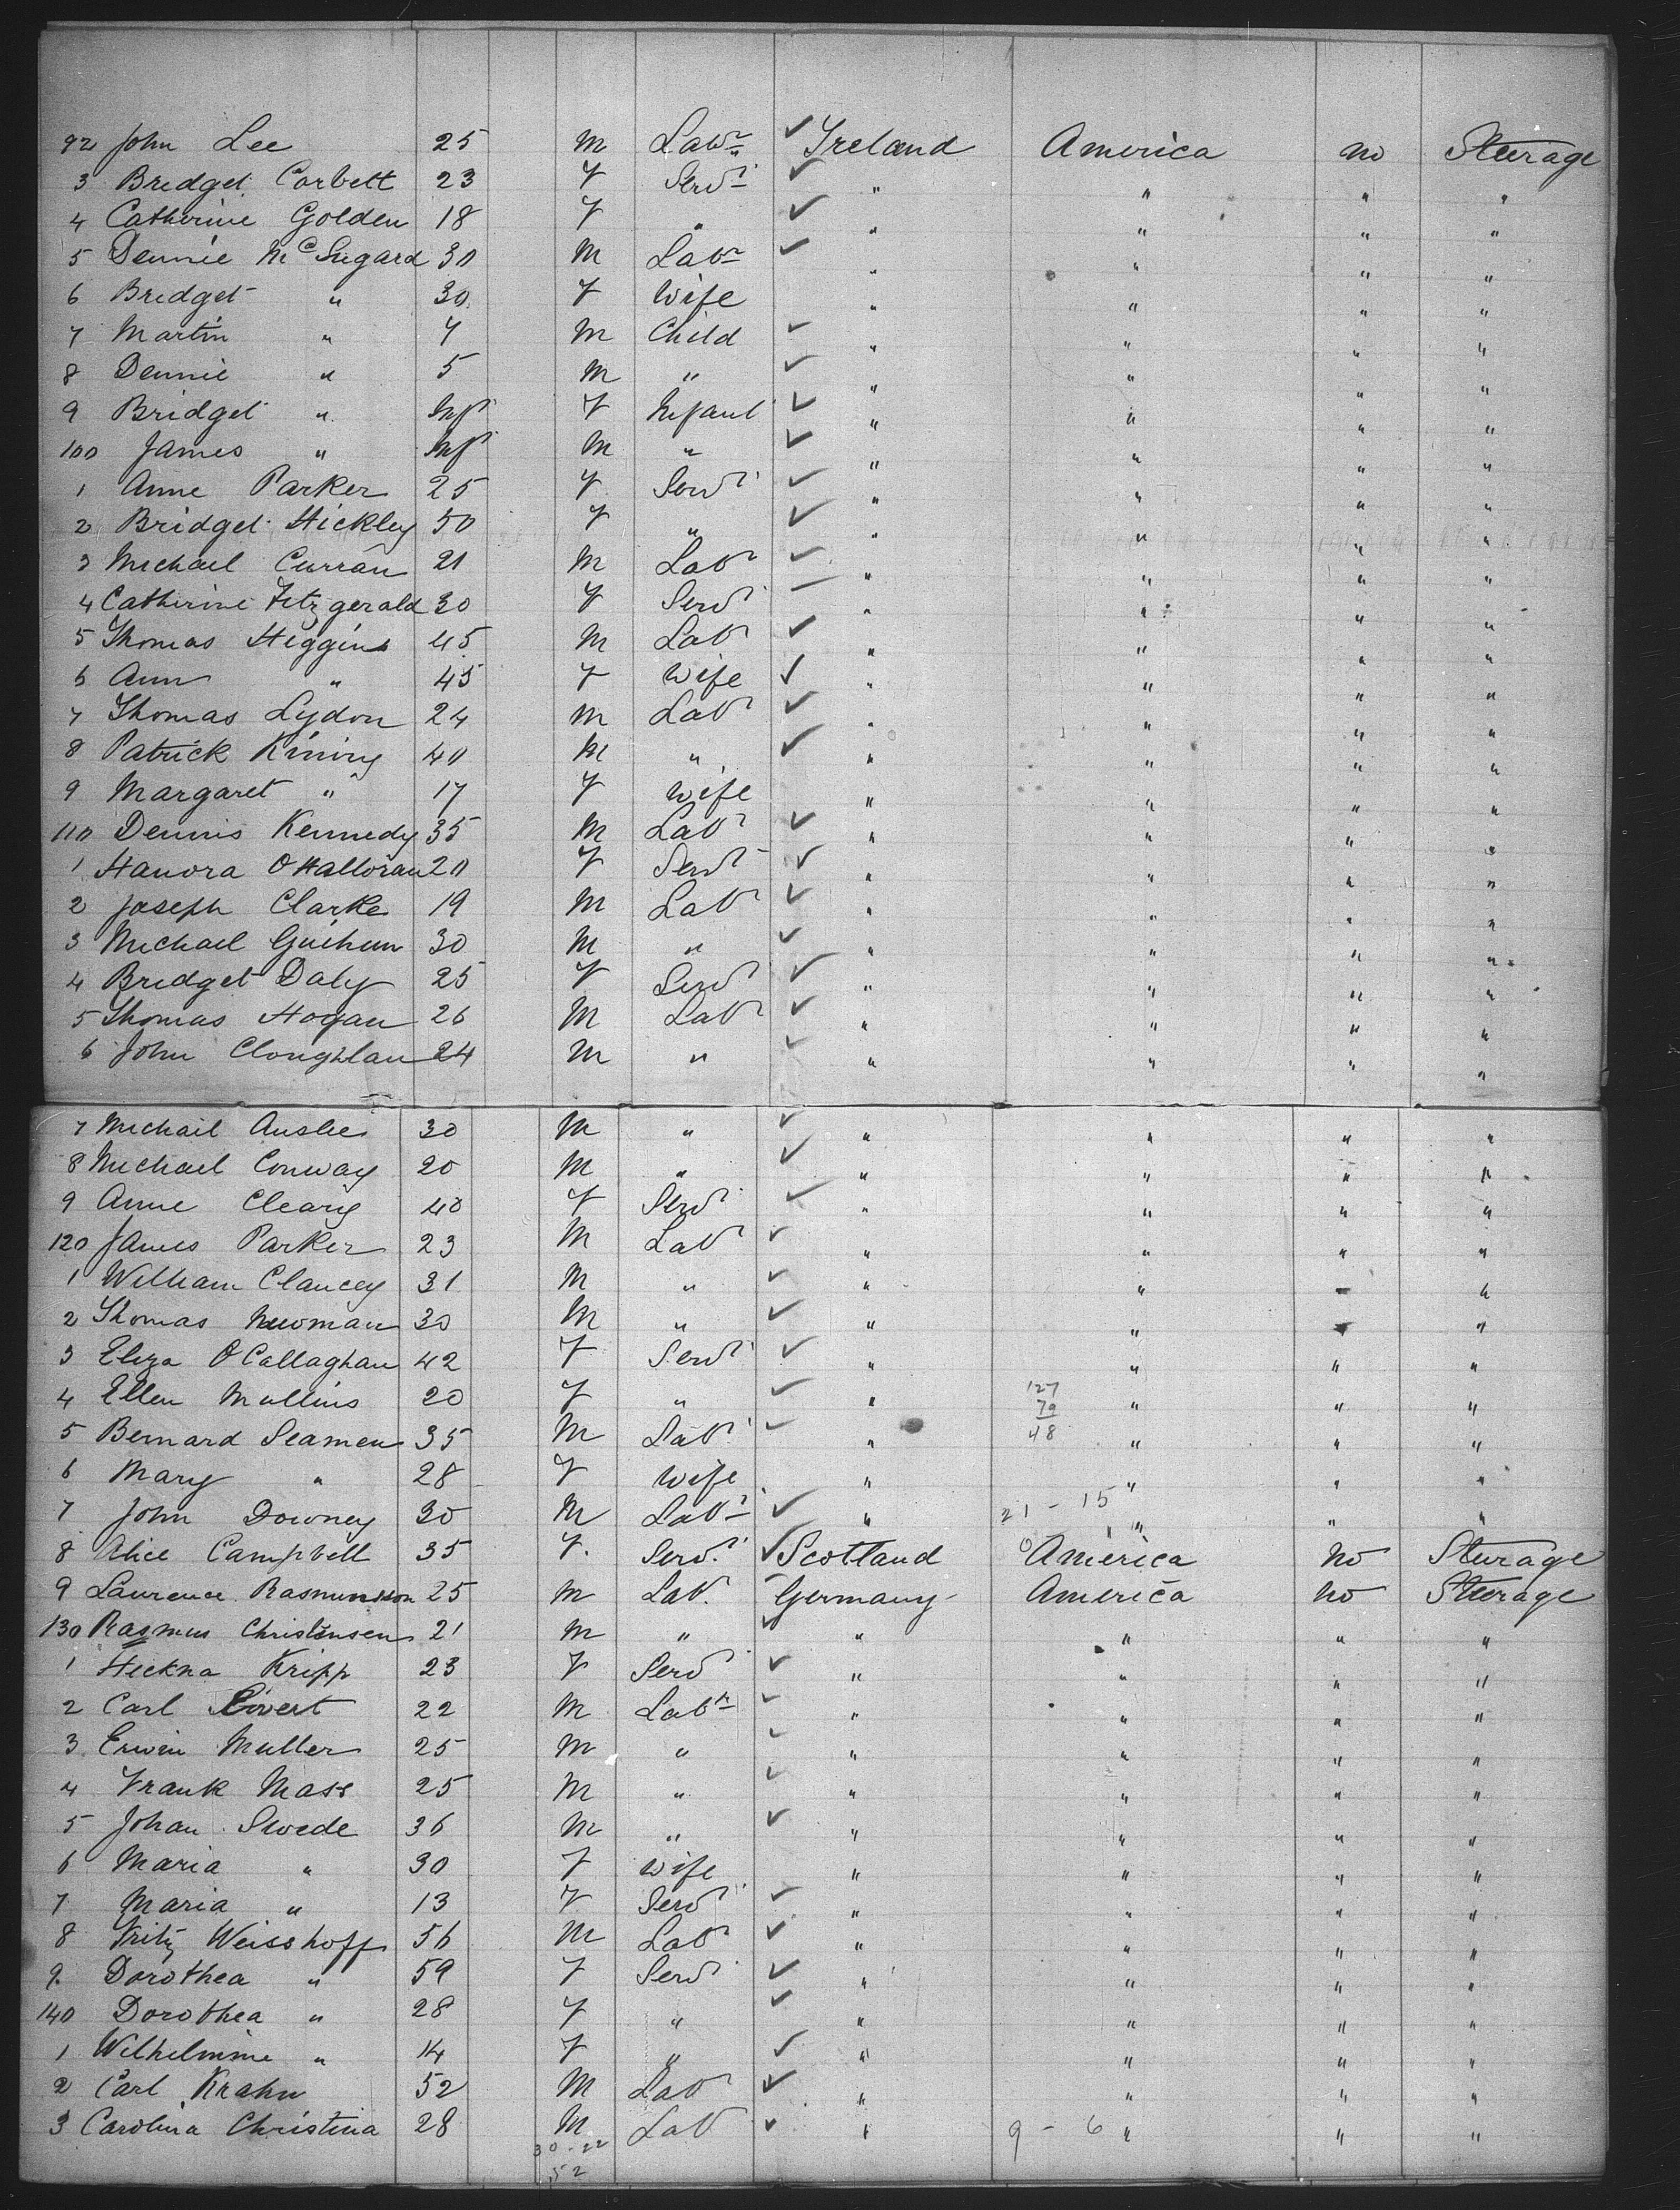 92 John Lee 25 M Labr Ireland America no Steerage
3 Bridget Corbett 23 F Servt " " " "
4 Catherine Golden 18 F " " " " "
5 Dennie 30 M Labr " " " "
6 Bridget " 30 F Wife " " " "
7 Martin " 7 M Child " " " "
8 Dennie " 5 M " " " " "
9 Bridget " Inft F Infant " " " "
100 James " Inft M " " " " "
1 Anne Parker 25 F Servt " " " "
2 Bridget Hickley 50 F " " " " "
3 Michael Curran 21 M Labr " " " "
4 Catherine Fitzgerald 30 F Servt " " " "
5 Thomas Higgins 45 M Labr " " " "
6 Ann " 45 F Wife " " " "
7 Thomas Lydon 24 M Labr " " " "
8 Patrick Kiniry 40 M " " " " "
9 Margaret " 17 F Wife " " " "
110 Dennis Kennedy 35 M Labr " " " "
1 Hanora O'Halloran 20 F Servt " " " "
2 Joseph Clarke 19 M Labr " " " "
3 Michael 30 M " " " " "
4 Bridget Daly 25 F Servt " " " "
5 Thomas Hogan 26 M Labr " " " "
6 John Cloughlan 24 M " " " " "
7 Michail Anslie 30 M " " " " "
8 Michael Conway 20 M " " " " "
9 Anne Cleary 40 F Servt " " " "
120 James Parker 23 M Labr " " " "
1 William Clancey 31 M " " " " "
2 Thomas Newman 30 M " " " " "
3 Eliza O'Callaghan 42 F Servt " " " "
4 Ellen Mullins 20 F " " " " "
127
79
48
5 Bernard Seamen 35 M Labr " " " "
6 Mary " 28 F Wife " " " "
21 - 15
7 John Downey 30 M Labr " " " "
8 Alice Campbell 35 F. Servt Scotland America no Steerage
9 Laurence Rasmusson 25 M Lab. Germany America no Steerage
130 Rasmus Christensen 21 M " " " " "
1 Kripp 23 F Servt " " " "
2 Carl 22 M Labr " " " "
3 Erwin Muller 25 M " " " " "
4 Frank Mass 25 M " " " " "
5 Johan Swede 36 M " " " " "
6 Maria " 30 F Wife " " " "
7 Maria " 13 F Servt " " " "
8 Fritz Weisshoff 56 M Labr " " " "
9 Dorothea " 59 F Servt " " " "
140 Dorothea " 28 F " " " " "
1 Wilhelmine " 14 F " " " " "
2 Carl Krahn 52 M Labr " " " "
3 Carolina Christina 28 M Labr " " " "
9 - 6
30 - 22
52